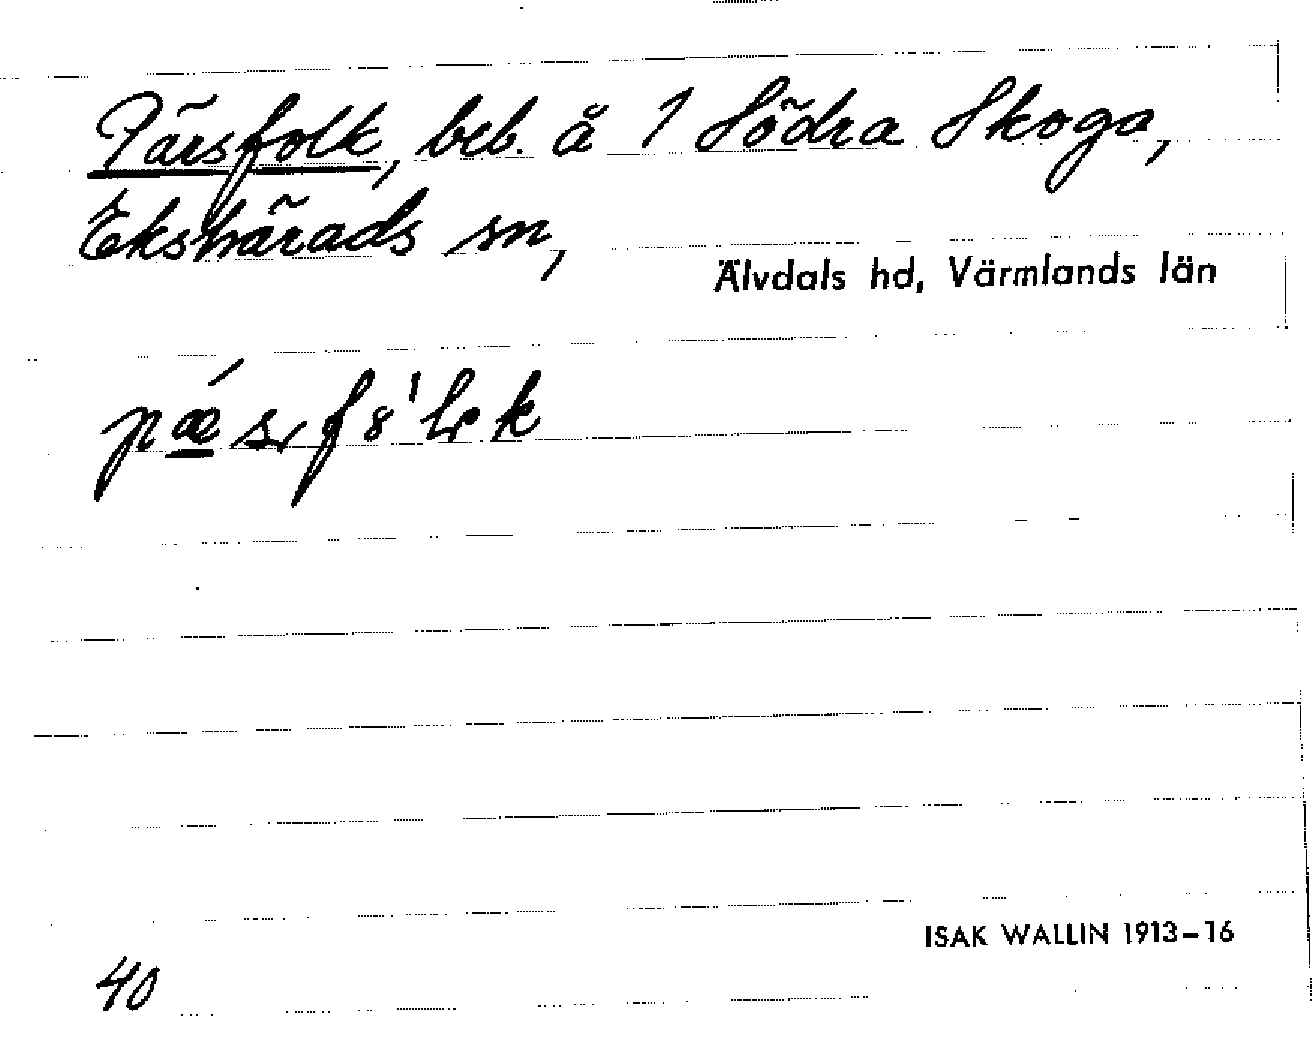 Pärsfolk, beb. å 1 Södra Skoga,
Ekshärads sn,
Älvdals hd, Värmlands län
ISAK WALLIN 1913-16
40